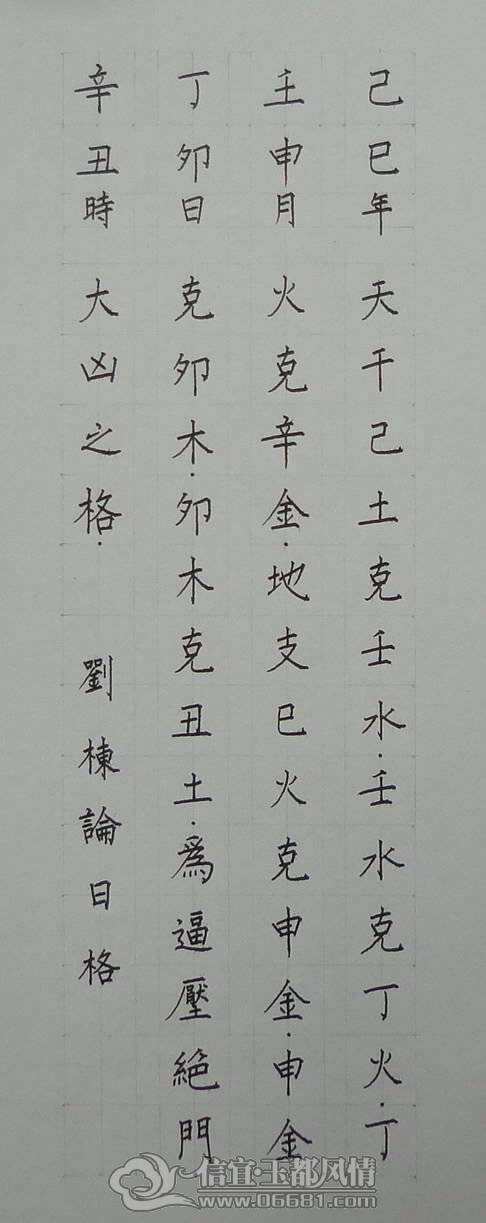 己巳年 天干己土克壬水.壬水克丁火.丁
壬申月 火克辛金.地支巳火克申金.申金
丁卯日 克卯木.卯木克丑土.為逼壓絕門
辛丑時 大凶之格. 劉棟論日格
信宜·玉都风情
www.06681.com